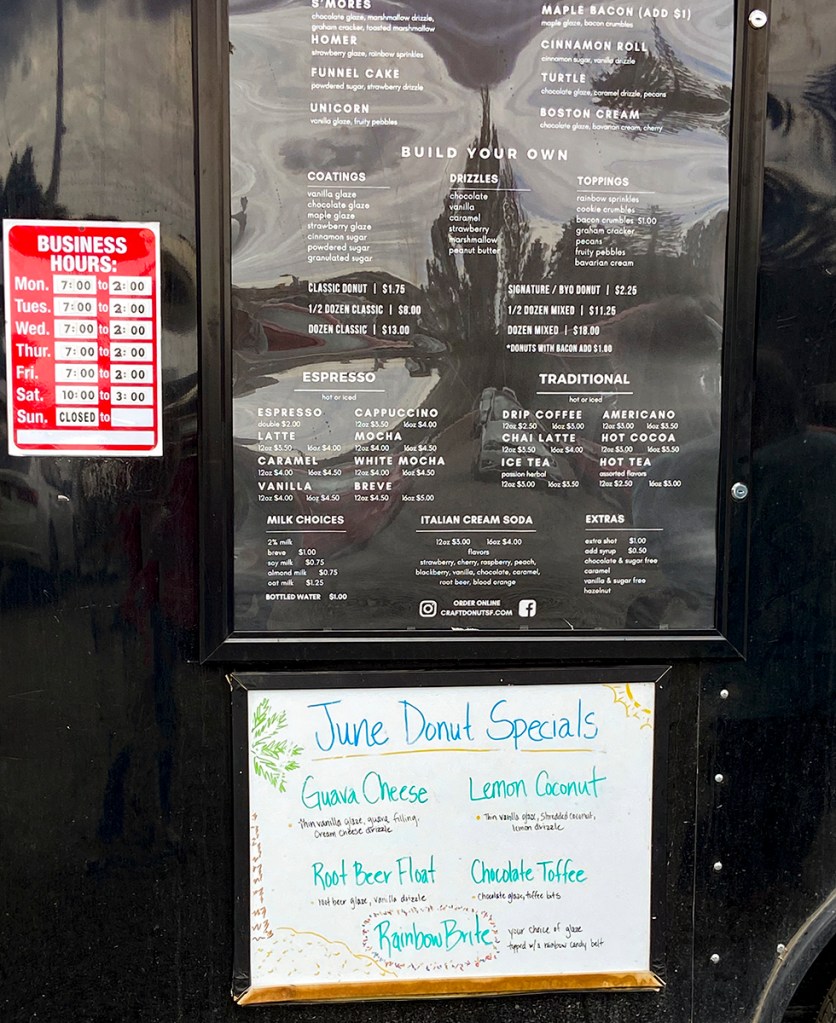 S'MORES
chocolate glaze, marshmallow drizzle,
graham cracker, toasted marshmallow
HOMER
strawberry glaze, rainbow sprinkles
FUNNEL CAKE
powdered sugar, strawberry drizzle
UNICORN
vanilla glaze, fruity pebbles
MAPLE BACON (ADD $1)
maple glaze, bacon crumbles
CINNAMON ROLL
cinnamon sugar, vanilla drizzle
TURTLE
chocolate glaze, caramel drizzle, pecans
BOSTON CREAM
chocolate glaze, bavarian cream, cherry
BUILD YOUR OWN
COATINGS
vanilla glaze
chocolate glaze
maple glaze
strawberry glaze
cinnamon sugar
powdered sugar
granulated sugar
DRIZZLES
chocolate
vanilla
caramel
strawberry
marshmallow
peanut butter
TOPPINGS
rainbow sprinkles
cookie crumbles
bacon crumbles $1.00
graham cracker
pecans
fruity pebbles
bavarian cream
CLASSIC DONUT | $1.75
1/2 DOZEN CLASSIC | $8.00
DOZEN CLASSIC | $13.00
SIGNATURE / BYO DONUT | $2.25
1/2 DOZEN MIXED | $11.25
DOZEN MIXED | $18.00
*DONUTS WITH BACON ADD $1.00
ESPRESSO
hot or iced
ESPRESSO
double $2.00
LATTE
12oz $3.50 16oz $4.00
CARAMEL
12oz $4.00 16oz $4.50
VANILLA
12oz $4.00 16oz $4.50
CAPPUCCINO
12oz $3.50 16oz $4.00
MOCHA
12oz $4.00 16oz $4.50
WHITE MOCHA
12oz $4.00 16oz $4.50
BREVE
12oz $4.50 16oz $5.00
TRADITIONAL
hot or iced
DRIP COFFEE
12oz $2.50 16oz $3.00
CHAI LATTE
12oz $3.50 16oz $4.00
ICE TEA
passion herbal
12oz $3.00 16oz $3.50
AMERICANO
12oz $3.00 16oz $3.50
HOT COCOA
12oz $3.00 16oz $3.50
HOT TEA
assorted flavors
12oz $2.50 16oz $3.00
MILK CHOICES
2% milk
breve $1.00
soy milk $0.75
almond milk $0.75
oat milk $1.25
BOTTLED WATER $1.00
ITALIAN CREAM SODA
12oz $3.00 16oz $4.00
flavors
strawberry, cherry, raspberry, peach,
blackberry, vanilla, chocolate, caramel,
root beer, blood orange
EXTRAS
extra shot $1.00
add syrup $0.50
chocolate & sugar free
caramel
vanilla & sugar free
hazelnut
ORDER ONLINE
CRAFTDONUTSF.COM
BUSINESS
HOURS:
Mon. 7:00 to 2:00
Tues. 7:00 to 2:00
Wed. 7:00 to 2:00
Thur. 7:00 to 2:00
Fri. 7:00 to 2:00
Sat. 10:00 to 3:00
Sun. CLOSED to
June Donut Specials
Guava Cheese
• Thin vanilla glaze, guava filling,
cream cheese drizzle
Lemon Coconut
• Thin vanilla glaze, Shredded coconut,
lemon drizzle
Root Beer Float
• root beer glaze, vanilla drizzle
Chocolate Toffee
• Chocolate glaze, toffee bits
Rainbow Brite
your choice of glaze
topped w/a rainbow candy belt